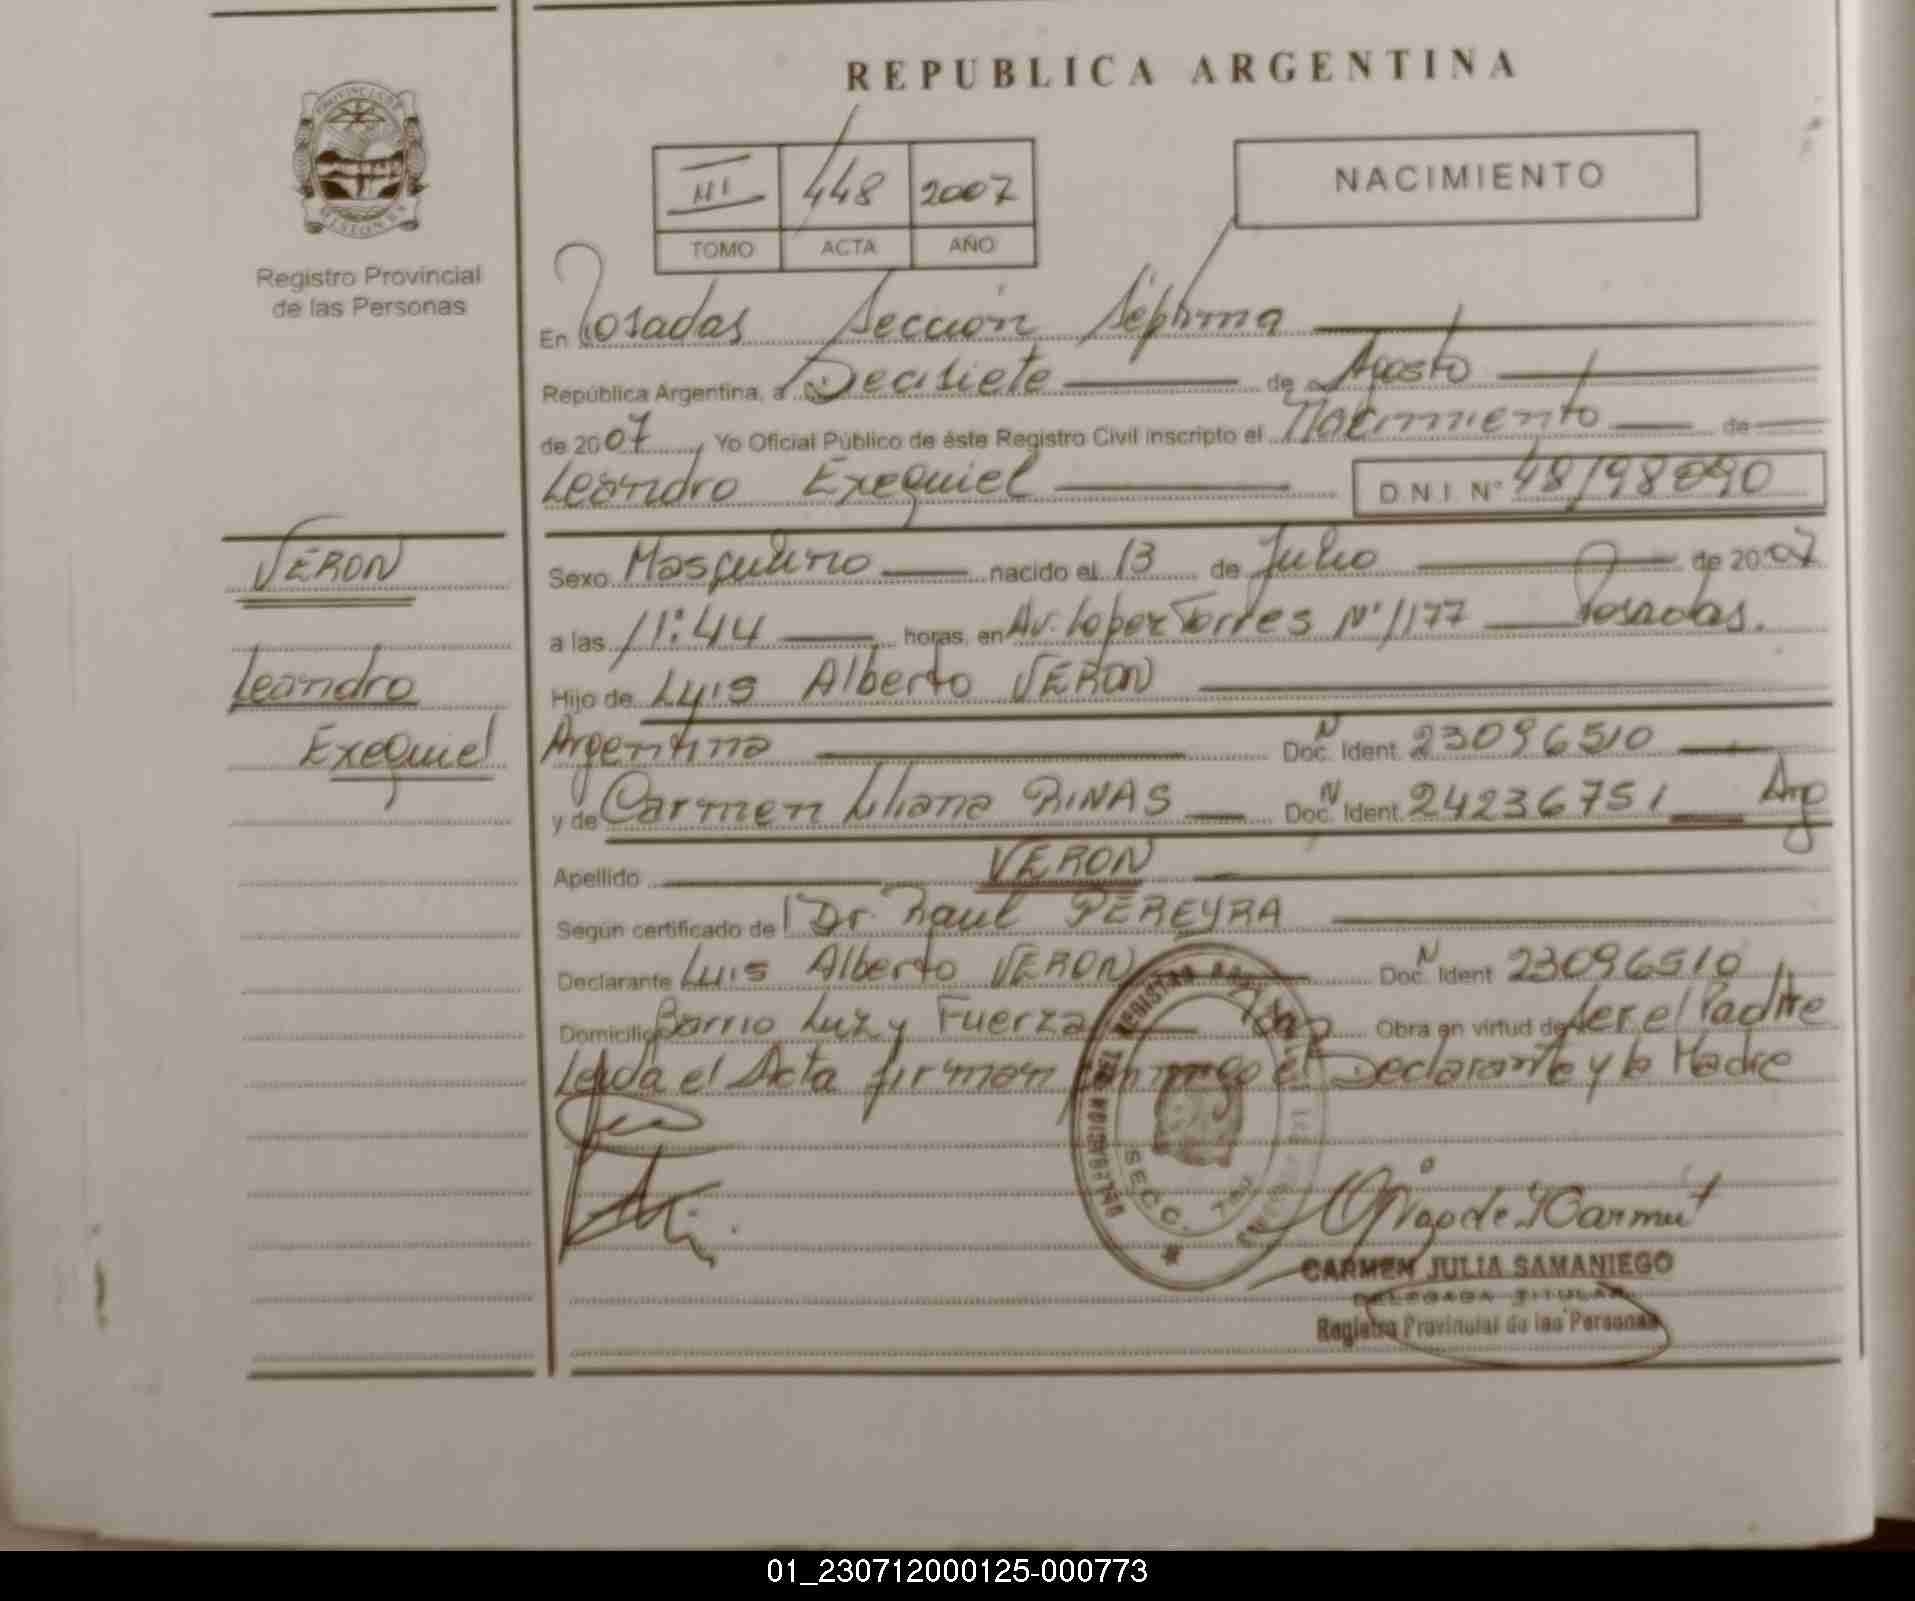 REPUBLICA ARGENTINA
PROVINCIA DE
MISIONES
Registro Provincial
de las Personas
III 448 2007
TOMO ACTA AÑO
NACIMIENTO
En Posadas Sección Séptima
República Argentina, a Diecisiete de Agosto
de 2007, Yo Oficial Público de éste Registro Civil inscripto el Nacimiento de
Leandro Exequiel D.N.I. Nº
VERON
Leandro
Exequiel
Sexo Masculino nacido el 13 de Julio de 2007
a las 11:44 horas, en Av. Lopez Torres Nº 1177 Posadas.
Hijo de Luis Alberto VERON
Argentina Doc. N Ident. 23096510
y de Carmen Liliana RINAS Doc. N Ident. 24236751 Arg
Apellido VERON
Según certificado de Dr. Raul PEREYRA
Declarante Luis Alberto VERON Doc. N Ident 23096510
Domicilio Barrio Luz y Fuerza Obra en virtud de ser el Padre
Leida el Acta firman conmigo el Declarante y la Madre
SECC. 7
CARMEN JULIA SAMANIEGO
DELEGADA TITULAR
Registro Provincial de las Personas
01_230712000125-000773